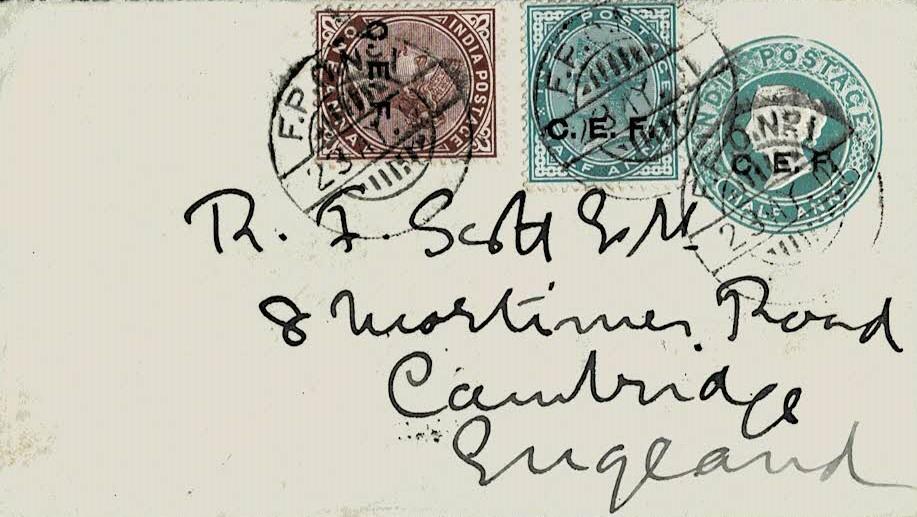 INDIA POSTAGE
C.E.F.
C. E. F.
INDIA POSTAGE
C. E. F.
HALF ANNA
R. F. Scott Esq.
8 Mortimer Road
Cambridge
England